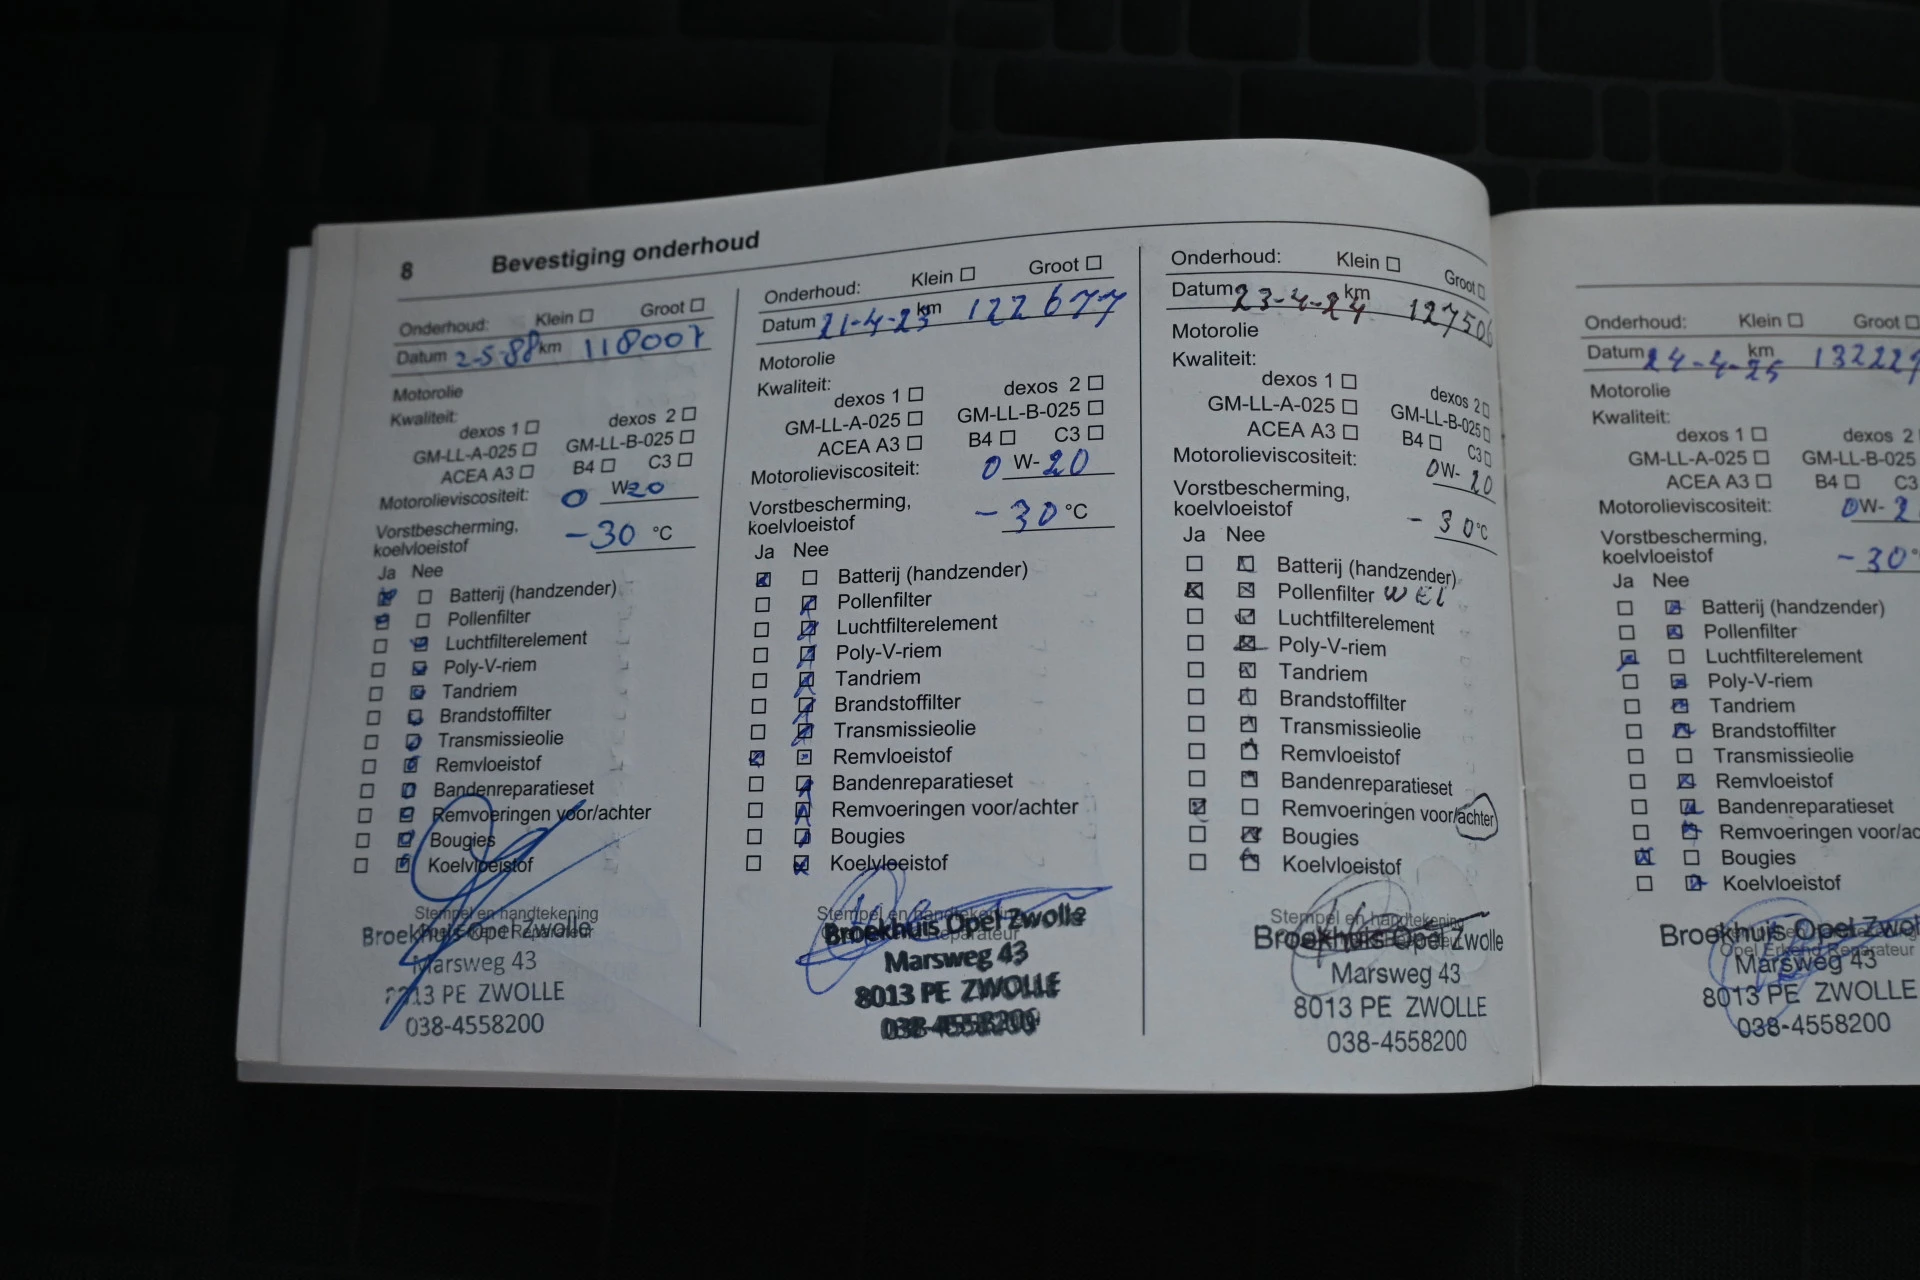 8 Bevestiging onderhoud
Onderhoud: Klein Groot
Datum 2-5-88 km 118007
Motorolie
Kwaliteit:
dexos 1 dexos 2
GM-LL-A-025 GM-LL-B-025
ACEA A3 B4 C3
Motorolieviscositeit: 0 W20
Vorstbescherming,
koelvloeistof -30 °C
Ja Nee
Batterij (handzender)
Pollenfilter
Luchtfilterelement
Poly-V-riem
Tandriem
Brandstoffilter
Transmissieolie
Remvloeistof
Bandenreparatieset
Remvoeringen voor/achter
Bougies
Koelvloeistof
Stempel en handtekening
Broekhuis Opel Zwolle
Marsweg 43
8013 PE ZWOLLE
038-4558200
Onderhoud: Klein Groot
Datum 21-4-23 km 122677
Motorolie
Kwaliteit:
dexos 1 dexos 2
GM-LL-A-025 GM-LL-B-025
ACEA A3 B4 C3
Motorolieviscositeit: 0 W-20
Vorstbescherming,
koelvloeistof -30 °C
Ja Nee
Batterij (handzender)
Pollenfilter
Luchtfilterelement
Poly-V-riem
Tandriem
Brandstoffilter
Transmissieolie
Remvloeistof
Bandenreparatieset
Remvoeringen voor/achter
Bougies
Koelvloeistof
Stempel en handtekening
Broekhuis Opel Zwolle
Marsweg 43
8013 PE ZWOLLE
038-4558200
Onderhoud: Klein Groot
Datum 23-4-24 km 127506
Motorolie
Kwaliteit:
dexos 1 dexos 2
GM-LL-A-025 GM-LL-B-025
ACEA A3 B4 C3
Motorolieviscositeit: 0W-20
Vorstbescherming,
koelvloeistof -30°C
Ja Nee
Batterij (handzender)
Pollenfilter WEL
Luchtfilterelement
Poly-V-riem
Tandriem
Brandstoffilter
Transmissieolie
Remvloeistof
Bandenreparatieset
Remvoeringen voor/achter
Bougies
Koelvloeistof
Stempel en handtekening
Broekhuis Opel Zwolle
Marsweg 43
8013 PE ZWOLLE
038-4558200
Onderhoud: Klein Groot
Datum 24-4-25 km 132229
Motorolie
Kwaliteit:
dexos 1 dexos 2
GM-LL-A-025 GM-LL-B-025
ACEA A3 B4 C3
Motorolieviscositeit: 0W-2
Vorstbescherming,
koelvloeistof -30°
Ja Nee
Batterij (handzender)
Pollenfilter
Luchtfilterelement
Poly-V-riem
Tandriem
Brandstoffilter
Transmissieolie
Remvloeistof
Bandenreparatieset
Remvoeringen voor/ac
Bougies
Koelvloeistof
Broekhuis Opel Zwol
Opel Erkend Reparateur
Marsweg 43
8013 PE ZWOLLE
038-4558200